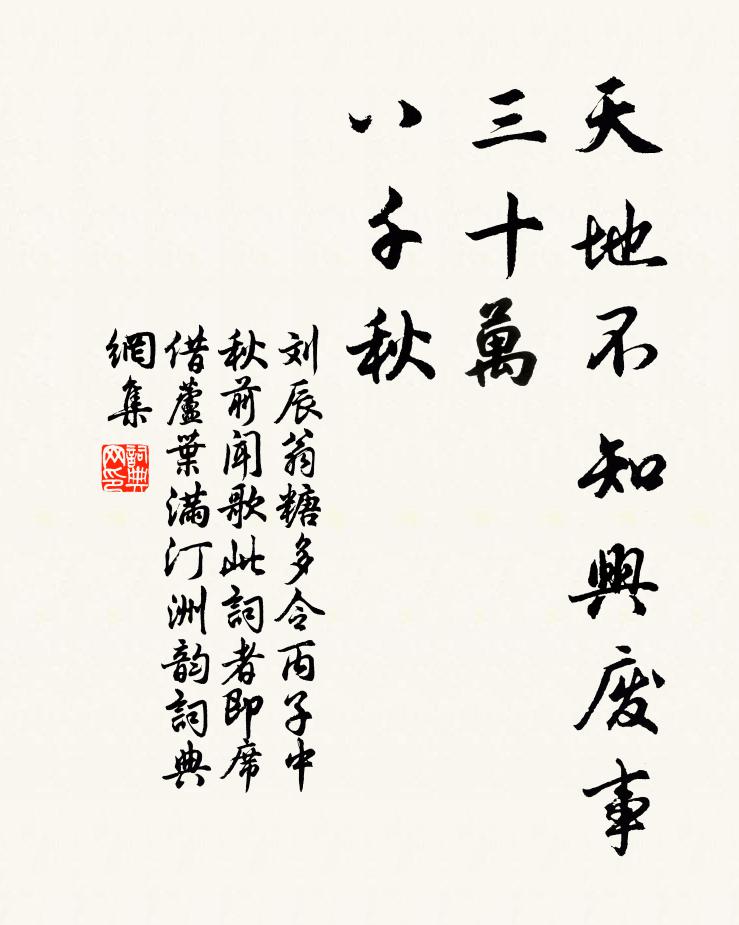 天地不知興廢事
三十萬
八千秋
刘辰翁糖多令丙子中
秋前闻歌此詞者即席
借蘆葉满汀洲韵詞典
網集
詞典
网印